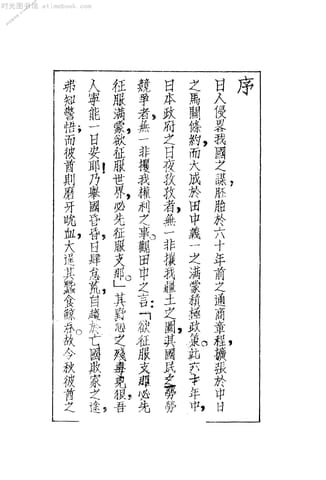 时光图书馆 etimebook.com
序
日人侵畧我國之謀，胚胎於六十年前之通商章程，擴張於中日
之馬關條約，而大成於田中義一之滿蒙積極政策。此六十年中，
日本政府之日夜孜孜者，無一非攘我疆土之圖，其國民之勞勞
競爭者，無一非攫我權利之事。觀田中之言：「欲征服支那必先
征服滿蒙，欲征服世界，必先征服支那。」其野心之殘毒兇狠，吾
人寧能一日安耶！乃舉國昏昏，日肆怠荒，自趨於亡國敗家之途，
未知警惕；而彼酋則磨牙吮血，大逞其蠶食鯨吞。故今秋彼酋之